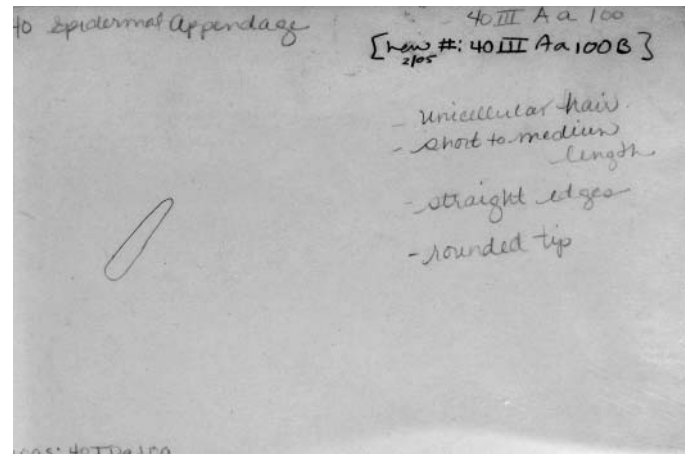 40 Epidermal Appendage
40 III A a 100
[new #: 40 III A a 100 B]
2/05
- unicellular hair
- short to medium
length
- straight edges
- rounded tip